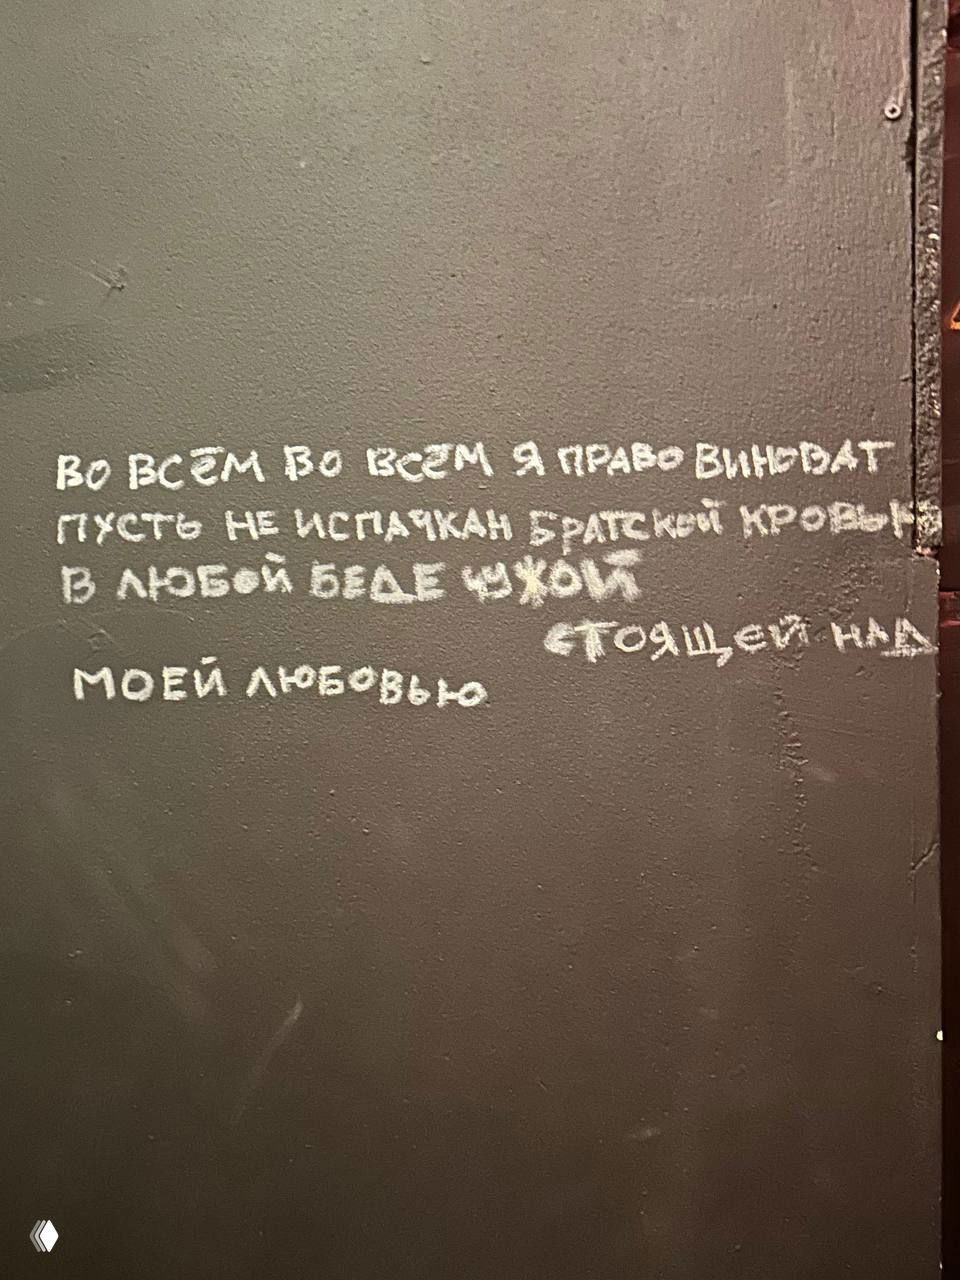 ВО ВСЁМ ВО ВСЁМ Я ПРАВО ВИНОВАТ
ПУСТЬ НЕ ИСПАЧКАН БРАТСКОЙ КРОВЬЮ
В ЛЮБОЙ БЕДЕ ЧУЖОЙ
СТОЯЩЕЙ НАД
МОЕЙ ЛЮБОВЬЮ